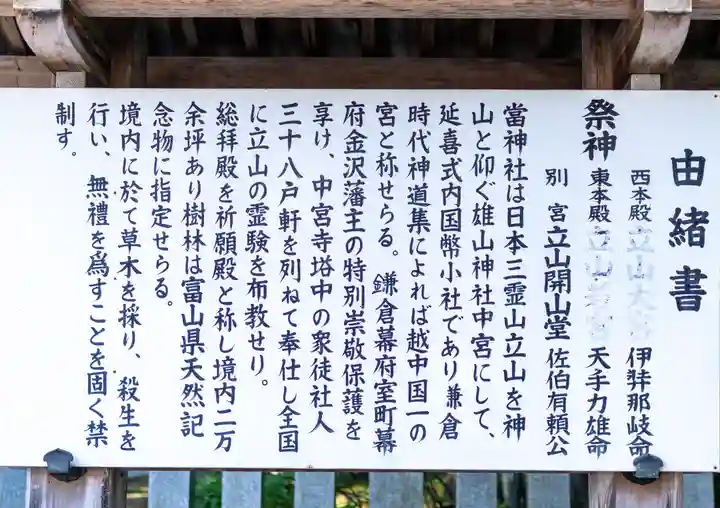 由緒書
西本殿 立山大宮 伊弉那岐命
祭神 東本殿 立山若宮 天手力雄命
別宮 立山開山堂 佐伯有頼公
當神社は日本三霊山立山を神
山と仰ぐ雄山神社中宮にして、
延喜式内国幣小社であり兼倉
時代神道集によれば越中国一の
宮と称せらる。鎌倉幕府室町幕
府金沢藩主の特別崇敬保護を
享け、中宮寺塔中の衆徒社人
三十八戸軒を列ねて奉仕し全国
に立山の霊験を布教せり。
総拝殿を祈願殿と称し境内二万
余坪あり樹林は富山県天然記
念物に指定せらる。
境内に於て草木を採り、殺生を
行い、無禮を為すことを固く禁
制す。